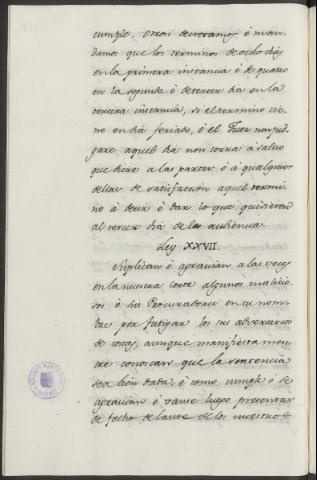 cumple. Otrosi decretamos, é man-
damos que los terminos de ocho dias
en la primera instancia é de quatro
en la segunda é de tercer dia en la
tercera instancia, si el termino vie-
ne en dia feriado, ó el Juez non jud-
gare aquel dia non corra á salvo
que here a las partes ó á qualquier
dellas de satisfaccion aquel termi-
no á decir é dar lo que quisieren
al tercer dia de la audiencia.
Ley XXVII.
Suplican é agravian a las veces
en la nuestra Corte algunos malicio-
sos é su Procuradores en su nom-
bre por fatigar los sus adversarios
de costas, aunque manifiestamen-
te conoscan que la sentencia
sea bien dada, é como cumple ó se
agravian é vanse luego presentar
de fecho delante de los nuestros